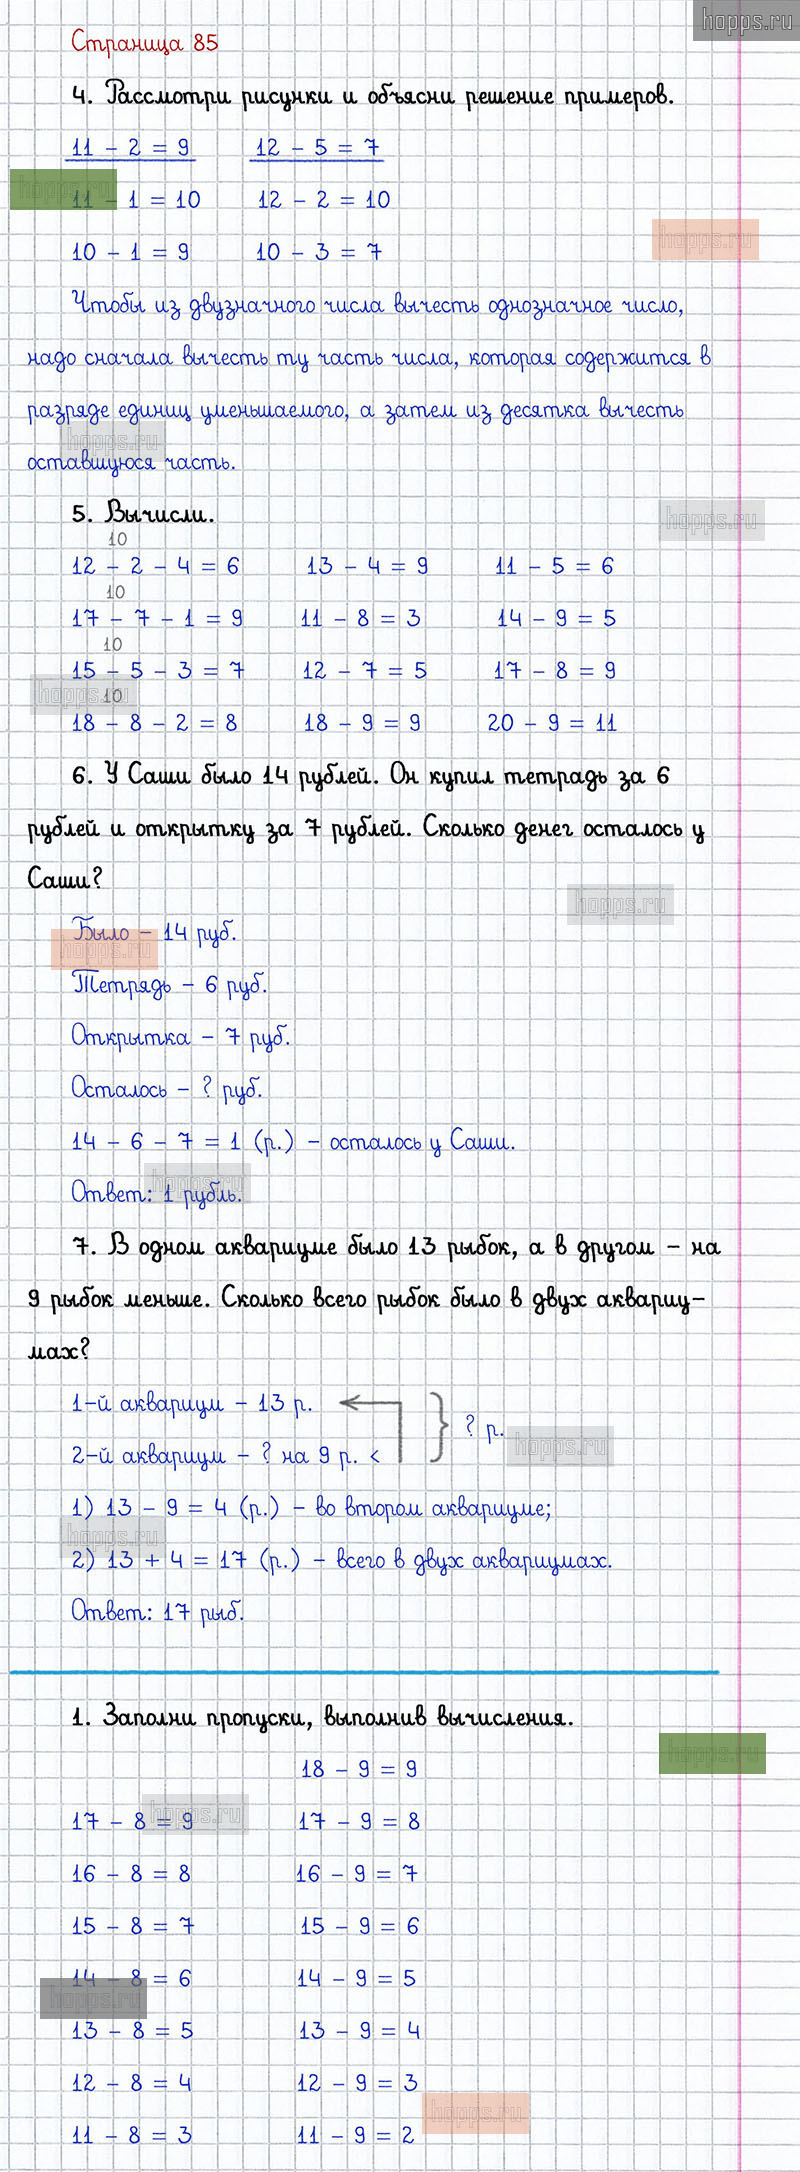 hopps.ru
Страница 85
4. Рассмотри рисунки и объясни решение примеров.
11 - 2 = 9 12 - 5 = 7
hopps.ru
11 - 1 = 10 12 - 2 = 10
hopps.ru
10 - 1 = 9 10 - 3 = 7
Чтобы из двузначного числа вычесть однозначное число,
надо сначала вычесть ту часть числа, которая содержится в
разряде единиц уменьшаемого, а затем из десятка вычесть
hopps.ru
оставшуюся часть.
5. Вычисли.
hopps.ru
10
12 - 2 - 4 = 6 13 - 4 = 9 11 - 5 = 6
10
17 - 7 - 1 = 9 11 - 8 = 3 14 - 9 = 5
10
15 - 5 - 3 = 7 12 - 7 = 5 17 - 8 = 9
hopps.ru
10
18 - 8 - 2 = 8 18 - 9 = 9 20 - 9 = 11
6. У Саши было 14 рублей. Он купил тетрадь за 6
рублей и открытку за 7 рублей. Сколько денег осталось у
Саши?
hopps.ru
Было - 14 руб.
hopps.ru
Тетрадь - 6 руб.
Открытка - 7 руб.
Осталось - ? руб.
14 - 6 - 7 = 1 (р.) - осталось у Саши.
hopps.ru
Ответ: 1 рубль.
7. В одном аквариуме было 13 рыбок, а в другом - на
9 рыбок меньше. Сколько всего рыбок было в двух аквариу-
мах?
1-й аквариум - 13 р.
? р.
hopps.ru
2-й аквариум - ? на 9 р. <
1) 13 - 9 = 4 (р.) - во втором аквариуме;
hopps.ru
2) 13 + 4 = 17 (р.) - всего в двух аквариумах.
Ответ: 17 рыб.
1. Заполни пропуски, выполнив вычисления.
hopps.ru
18 - 9 = 9
hopps.ru
17 - 8 = 9 17 - 9 = 8
16 - 8 = 8 16 - 9 = 7
15 - 8 = 7 15 - 9 = 6
14 - 8 = 6 14 - 9 = 5
hopps.ru
13 - 8 = 5 13 - 9 = 4
12 - 8 = 4 12 - 9 = 3
hopps.ru
11 - 8 = 3 11 - 9 = 2